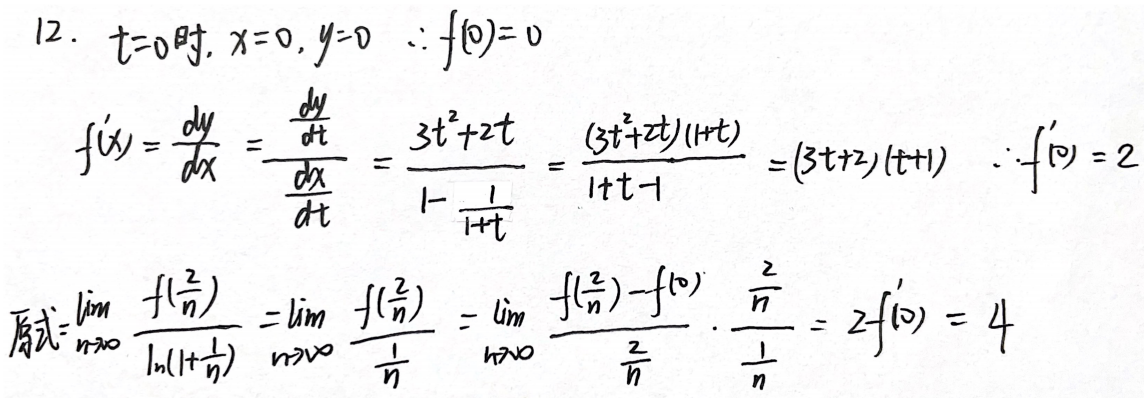 12. t=0时, x=0, y=0 ∴ f(0)=0
f'(x) = \frac{dy}{dx} = \frac{\frac{dy}{dt}}{\frac{dx}{dt}} = \frac{3t^2+2t}{1-\frac{1}{1+t}} = \frac{(3t^2+2t)(1+t)}{1+t-1} = (3t+2)(t+1) ∴ f'(0) = 2
原式 = \lim_{n→∞} \frac{f(\frac{2}{n})}{\ln(1+\frac{1}{n})} = \lim_{n→∞} \frac{f(\frac{2}{n})}{\frac{1}{n}} = \lim_{n→∞} \frac{f(\frac{2}{n})-f(0)}{\frac{2}{n}} · \frac{\frac{2}{n}}{\frac{1}{n}} = 2f'(0) = 4